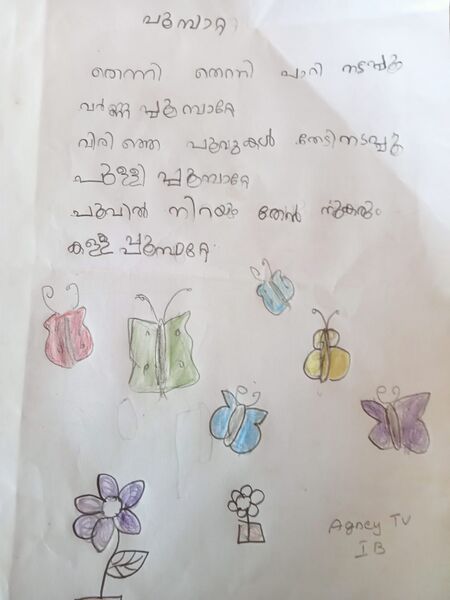 പൂമ്പാറ്റ
തെന്നി തെന്നി പാറി നടപ്പൂ
വർണ്ണ പ്പൂമ്പാറ്റേ
വിരിഞ്ഞ പൂവുകൾ തേടിനടപ്പൂ
പുള്ളി പ്പൂമ്പാറ്റേ
പൂവിൽ നിറയും തേൻ നുകരും
കള്ള പ്പൂമ്പാറ്റേ
Agney TV
I B